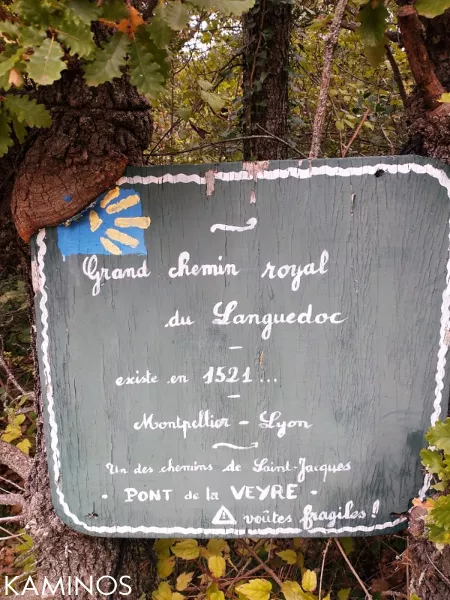 Grand chemin royal
du Languedoc
existe en 1521...
Montpellier - Lyon
Un des chemins de Saint-Jacques
· PONT de la VEYRE ·
⚠ voûtes fragiles !
KAMINOS